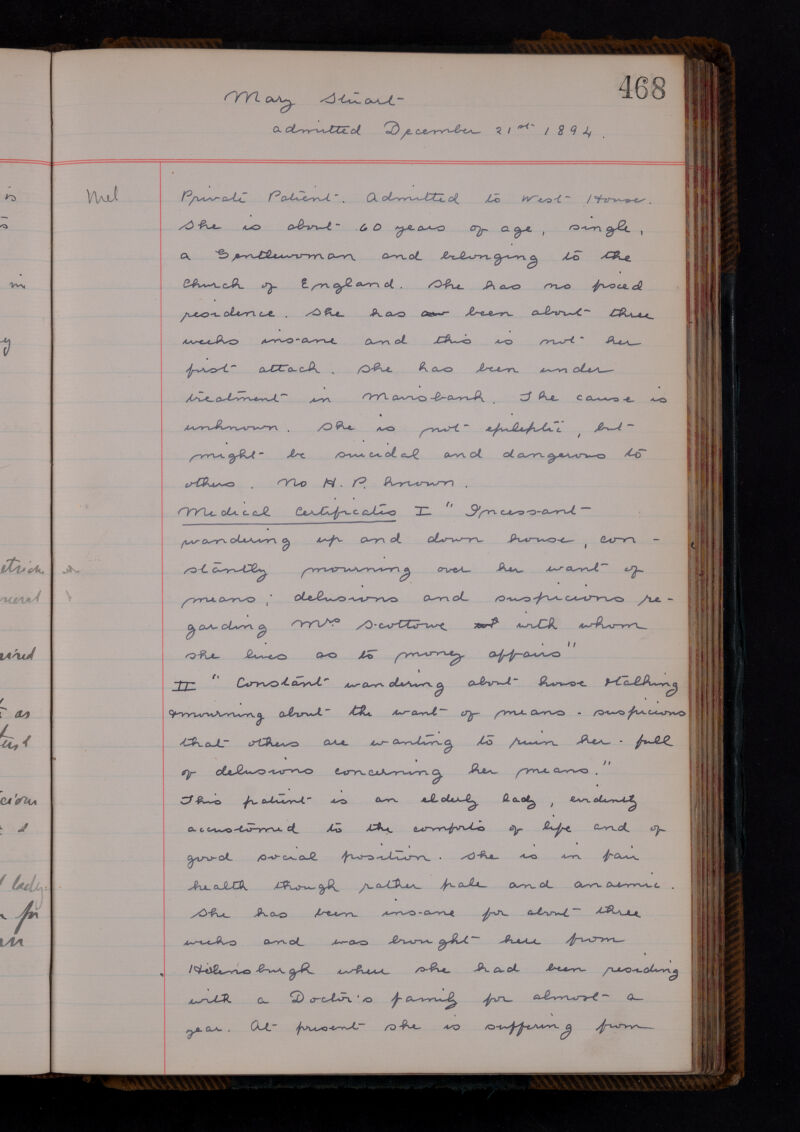 468
Mary Stuart
admitted December 21st 1894.
Mel
Private Patient. Admitted to West House.
She is about 60 years of age, single,
a Gentlewoman and belonging to the
Church of England. She has no fixed
residence. She has been about three
weeks insane and this is not her
first attack. She has been under
treatment in Mavisbank. The cause is
unknown. She is not epileptic, but
might be suicidal and dangerous to
others. No H. P. known.
Medical Certificates I " Incessant
wandering up and down house, con-
stantly mourning over her want of
means; delusions and suspicions re-
garding Mrs Scottowe with whom
she lives as to money affairs"
II " Constant wandering about house talking
& mourning about the want of means - suspicious
that others are wanting to ruin her - full
of delusions concerning her means."
This patient is an elderly lady, evidently
accustomed to the comforts of life and of
good social position. She is in fair
health though rather pale and anaemic.
She has been insane for about three
weeks and was brought here from
Helensburgh where she had been residing
with a Doctor's family for almost a
year. At present she is suffering from